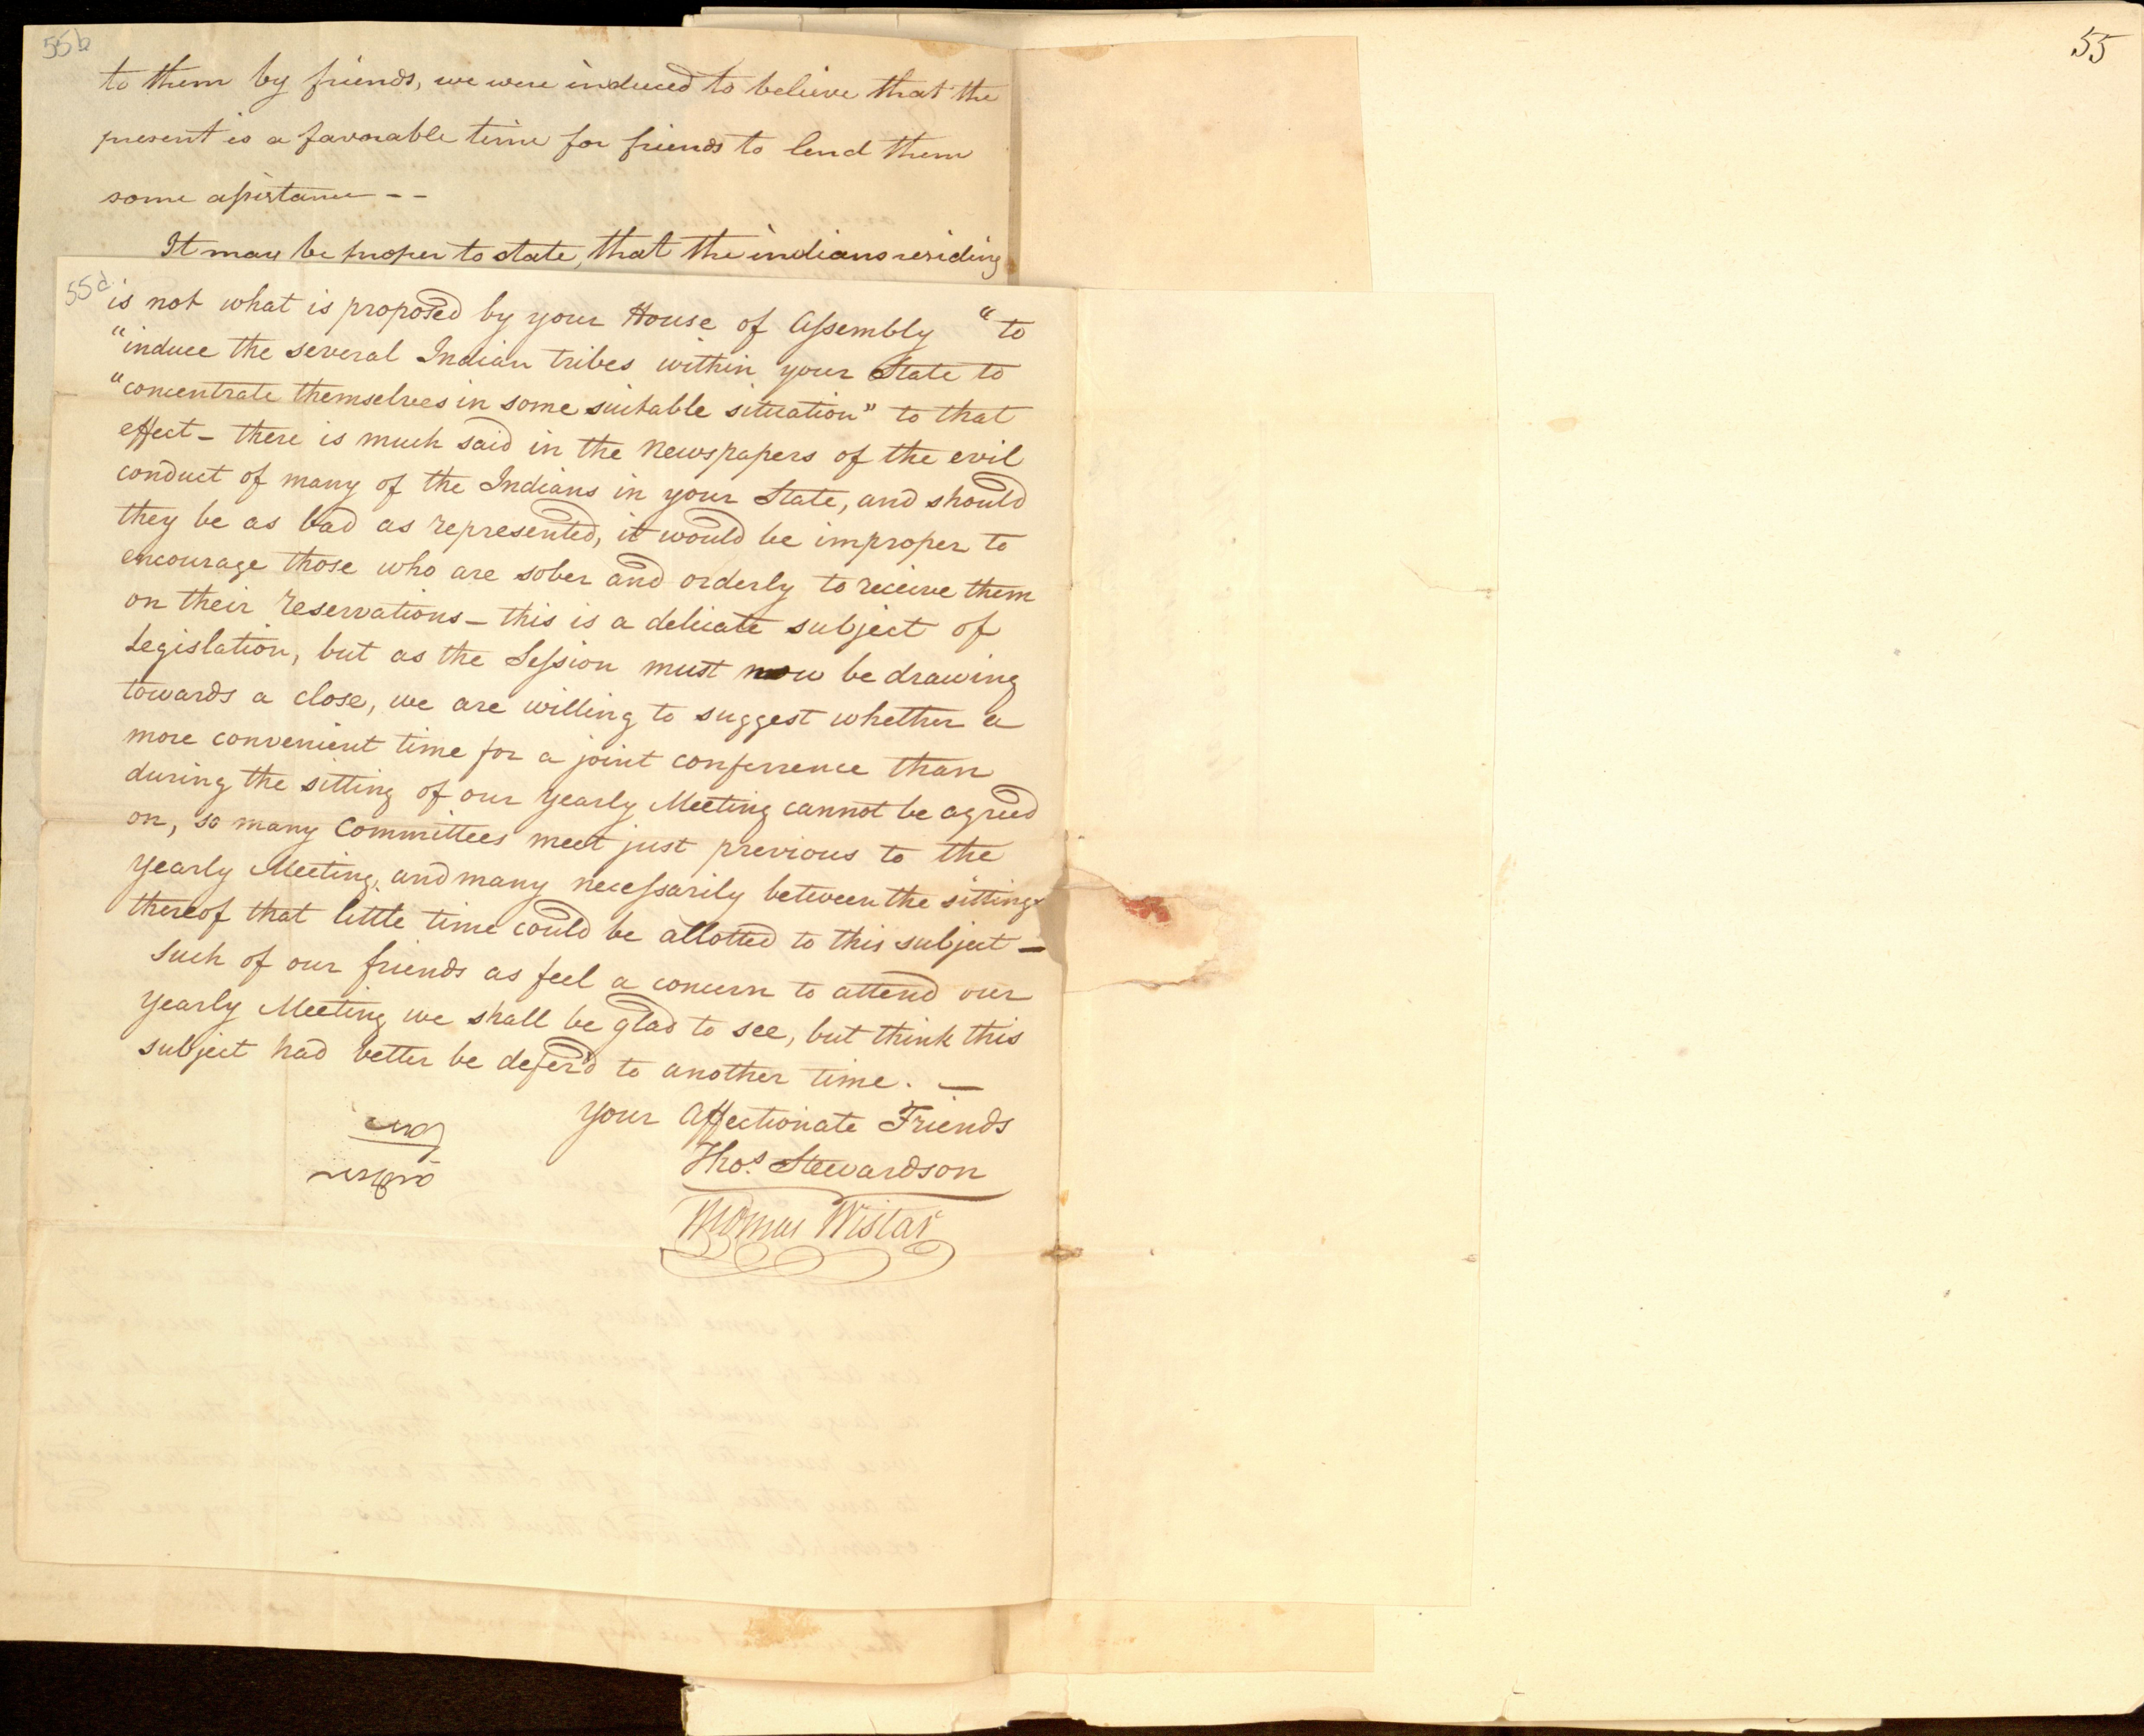 55b
55
to them by friends, we were induced to believe that the
present is a favorable time for friends to lend them
some assistance - -
It may be proper to state, that the indians residing
55d
is not what is proposed by your House of Assembly "to
"induce the several Indian tribes within your State to
"concentrate themselves in some suitable situation" to that
effect – there is much said in the Newspapers of the evil
conduct of many of the Indians in your State, and should
they be as bad as represented, it would be improper to
encourage those who are sober and orderly to receive them
on their reservations – this is a delicate subject of
Legislation, but as the Session must now be drawing
towards a close, we are willing to suggest whether a
more convenient time for a joint conference than
during the sitting of our Yearly Meeting cannot be agreed
on, so many Committees meet just previous to the
Yearly Meeting, and many necessarily between the sittings
thereof that little time could be allotted to this subject –
Such of our friends as feel a concern to attend our
Yearly Meeting we shall be glad to see, but think this
subject had better be defer'd to another time. –
Your Affectionate Friends
Thos. Stewardson
Thomas Wistar